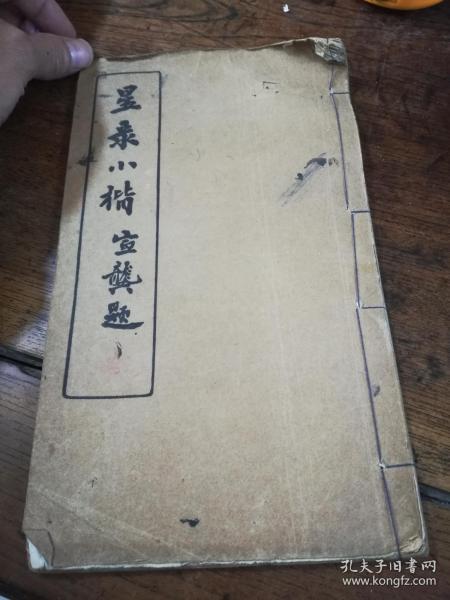 星录小楷 宣龚题
孔夫子旧书网
www.kongfz.com